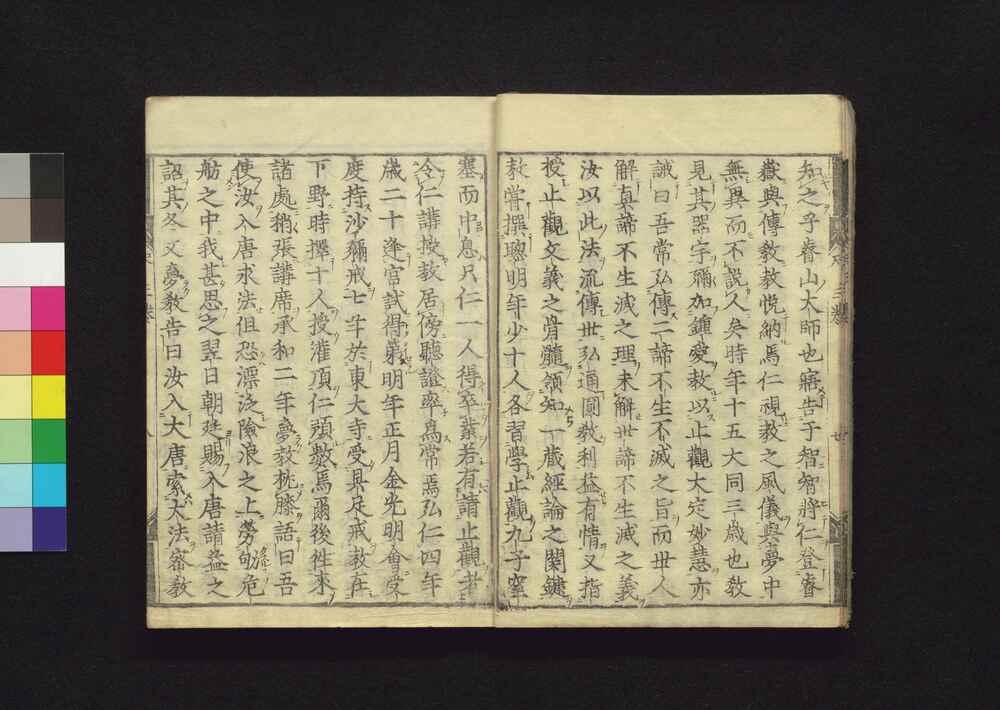 知之乎睿山大師也寤告于智智將仁登睿
嶽與傳教教悦納焉仁視教之風儀與夢中
無異而不説人矣時年十五大同三歳也教
見其器宇彌加鍾愛教以止觀大定妙慧亦
誡曰吾常弘傳二諦不生不滅之旨而世人
解眞諦不生滅之理未解世諦不生滅之義
汝以此法流傳世弘通圓教利益有情又指
授止觀文義之骨髓領知一藏經論之関鍵
教嘗撰聰明年少十人各習學止觀九子窒
塞而中息只仁一人得卒業若有請止觀者
令仁講授教居傍聽證率爲常焉弘仁四年
歳二十逢官試得第明年正月金光明會受
度持沙彌戒七年於東大寺受具足戒教在
下野時擇十人授灌頂仁預數焉爾後往來
諸處稍張講席承和二年夢教枕膝語曰吾
使汝入唐求法但恐漂泛險浪之上勞劬危
舫之中我甚思之翌日朝廷賜入唐請益之
詔其冬又夢教告曰汝入大唐索大法密教
三 世 八